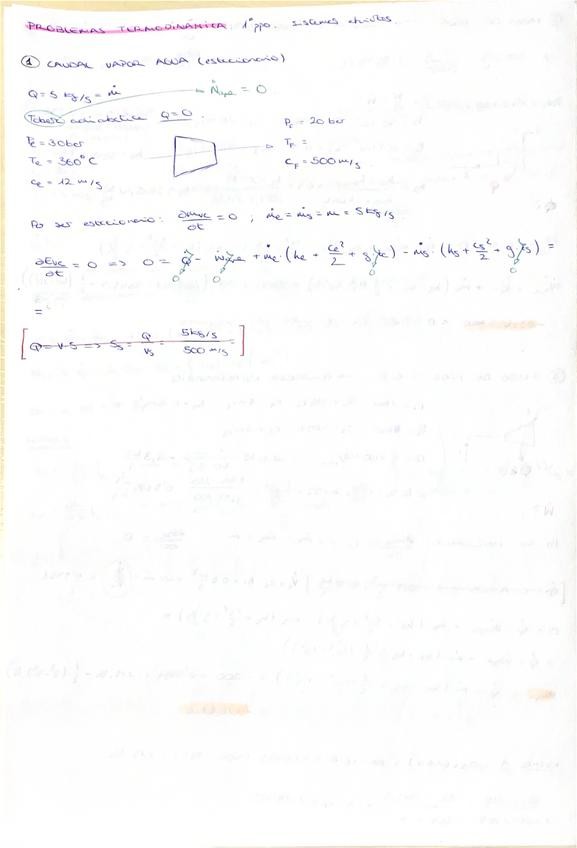 PROBLEMAS TERMODINÁMICA 1º ppo. sistemas abiertos.
① CAUDAL VAPOR AGUA (estacionario)
Q = 5 kg/s = ṁ → Ẇ = 0
Tobera adiabática Q=0.
Pe = 30 bar
Te = 360°C
ce = 12 m/s
Ps = 20 bar
cF = 500 m/s
Por ser estacionario: ∂mvc/∂t = 0 ; ṁe = ṁs = ṁ = 5 kg/s
∂Evc/∂t = 0 => 0 = Q̇ - Ẇ + ṁe·(he + ce²/2 + g·ze) - ṁs·(hs + cs²/2 + g·zs) =
0 0 0 0
=
[Q = v·S => Ss = Q/vs = 5 kg/s / 500 m/s =]